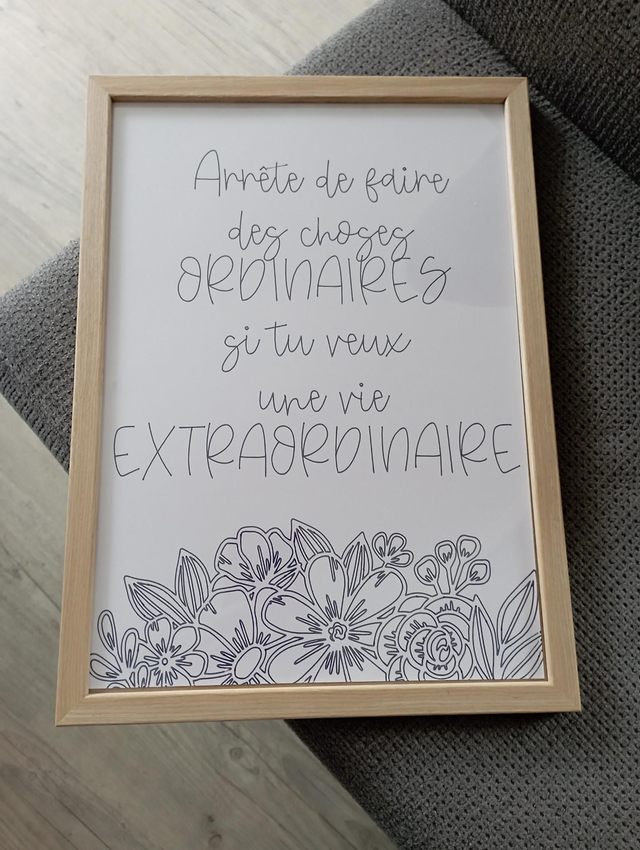 Arrête de faire
des choses
ORDINAIRES
si tu veux
une vie
EXTRAORDINAIRE